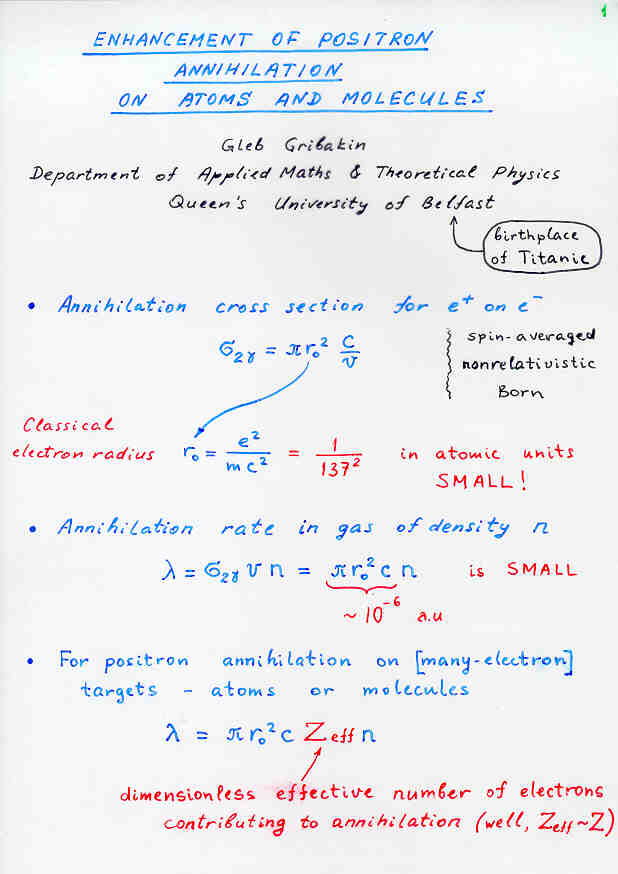 1
ENHANCEMENT OF POSITRON
ANNIHILATION
ON ATOMS AND MOLECULES
Gleb Gribakin
Department of Applied Maths & Theoretical Physics
Queen's University of Belfast
birthplace
of Titanic
• Annihilation cross section for e⁺ on e⁻
σ₂γ = πr₀² c/v
spin-averaged
nonrelativistic
Born
Classical
electron radius r₀ = e²/mc² = 1/137² in atomic units
SMALL!
• Annihilation rate in gas of density n
λ = σ₂γ v n = πr₀² c n is SMALL
~ 10⁻⁶ a.u
• For positron annihilation on [many-electron]
targets - atoms or molecules
λ = πr₀² c Zeff n
dimensionless effective number of electrons
contributing to annihilation (well, Zeff ~ Z)